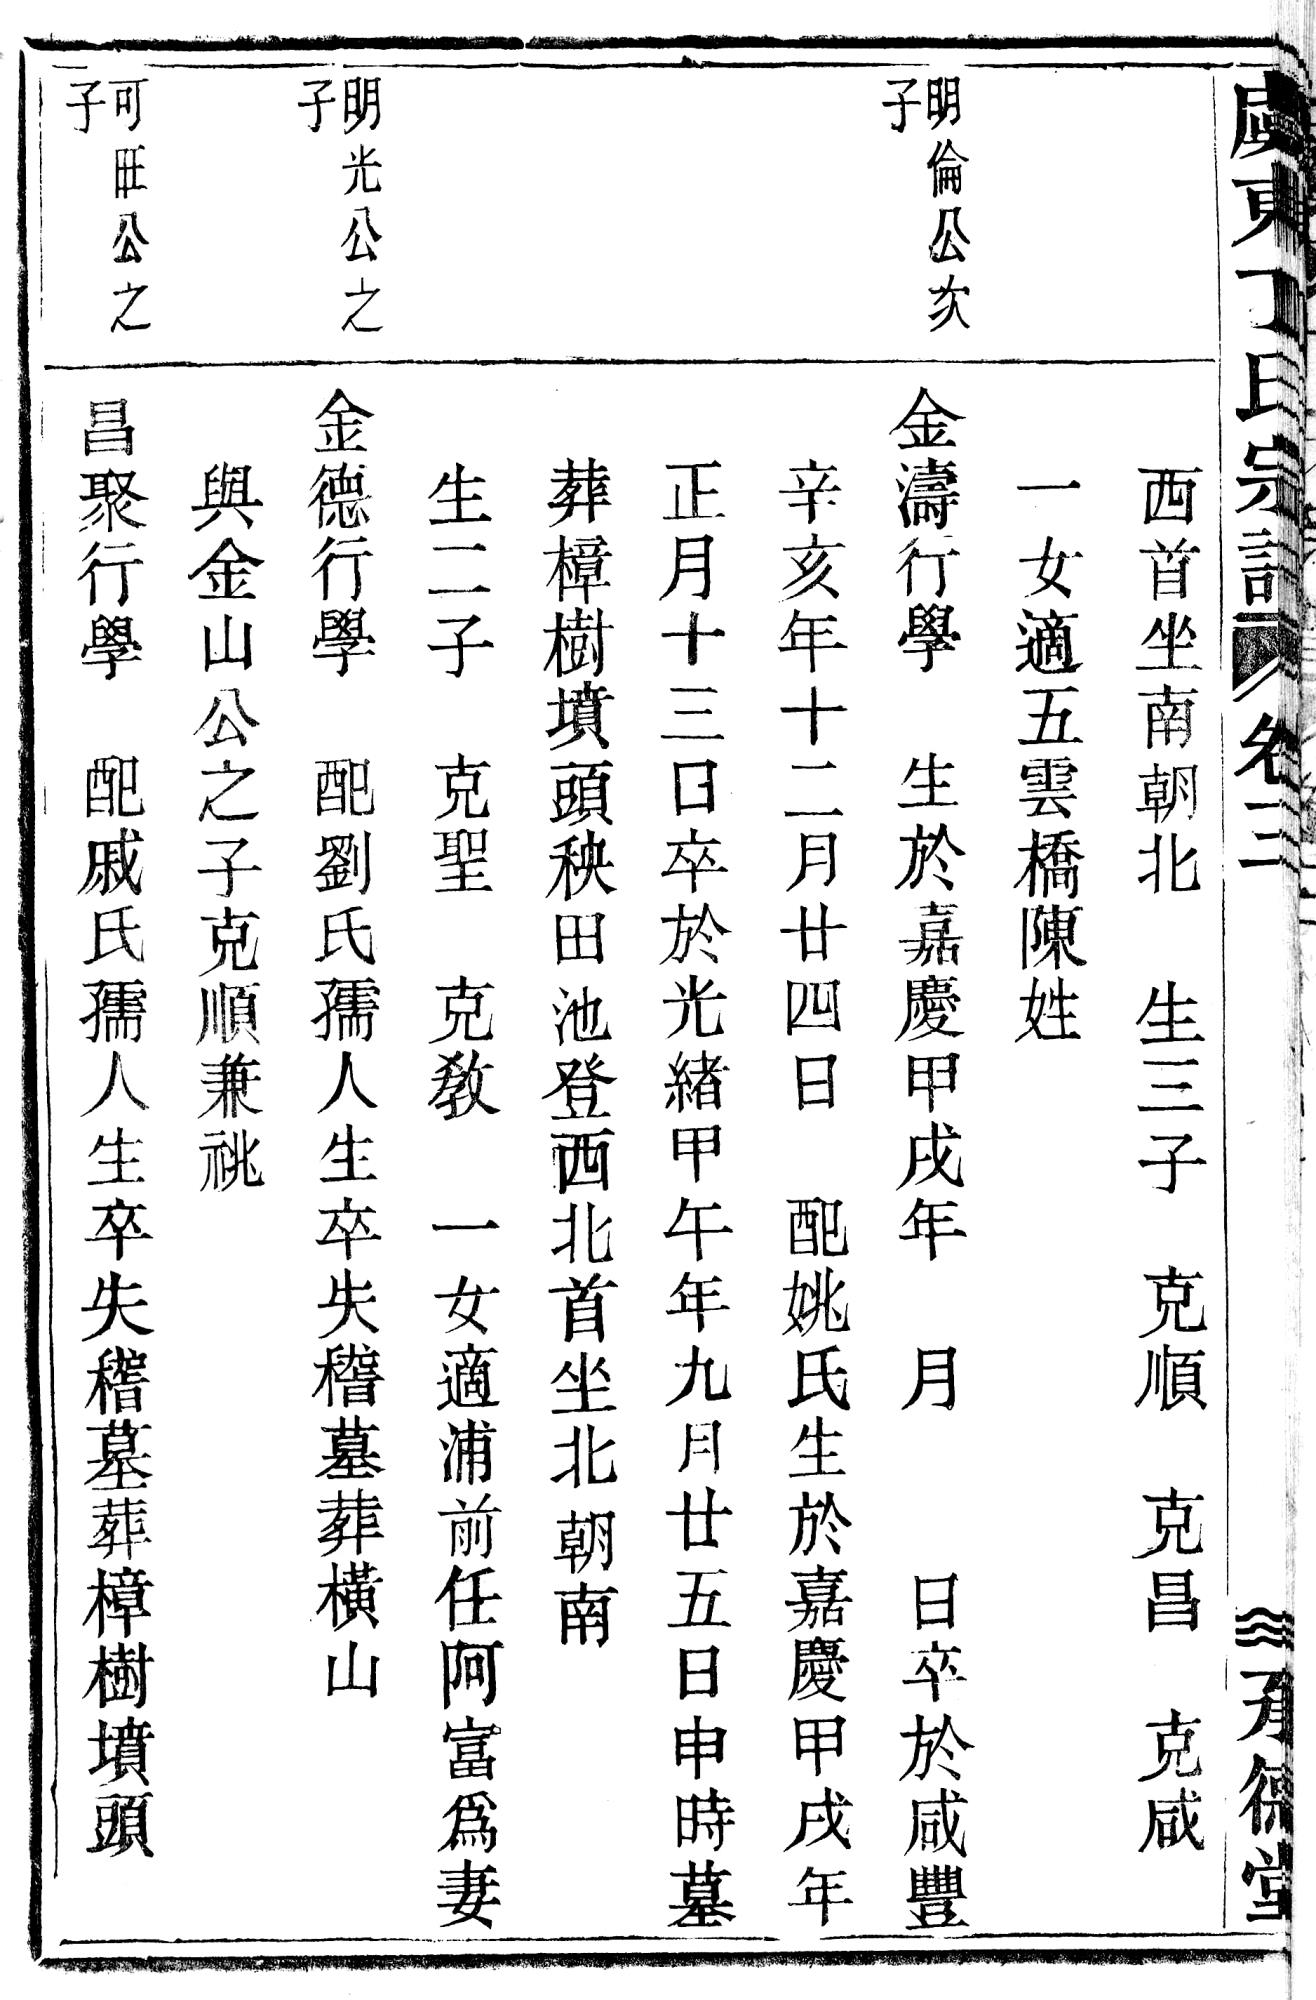 虞東丁氏宗譜 卷二 承德堂
西首坐南朝北 生三子 克順 克昌 克咸
一女適五雲橋陳姓
明倫公次
子
金濤行學 生於嘉慶甲戌年 月 日卒於咸豐
辛亥年十二月廿四日 配姚氏生於嘉慶甲戌年
正月十三日卒於光緒甲午年九月廿五日申時墓
葬樟樹墳頭秧田池登西北首坐北朝南
生二子 克聖 克教 一女適浦前任阿富爲妻
明光公之
子
金德行學 配劉氏孺人生卒失稽墓葬橫山
與金山公之子克順兼祧
可旺公之
子
昌聚行學 配戚氏孺人生卒失稽墓葬樟樹墳頭